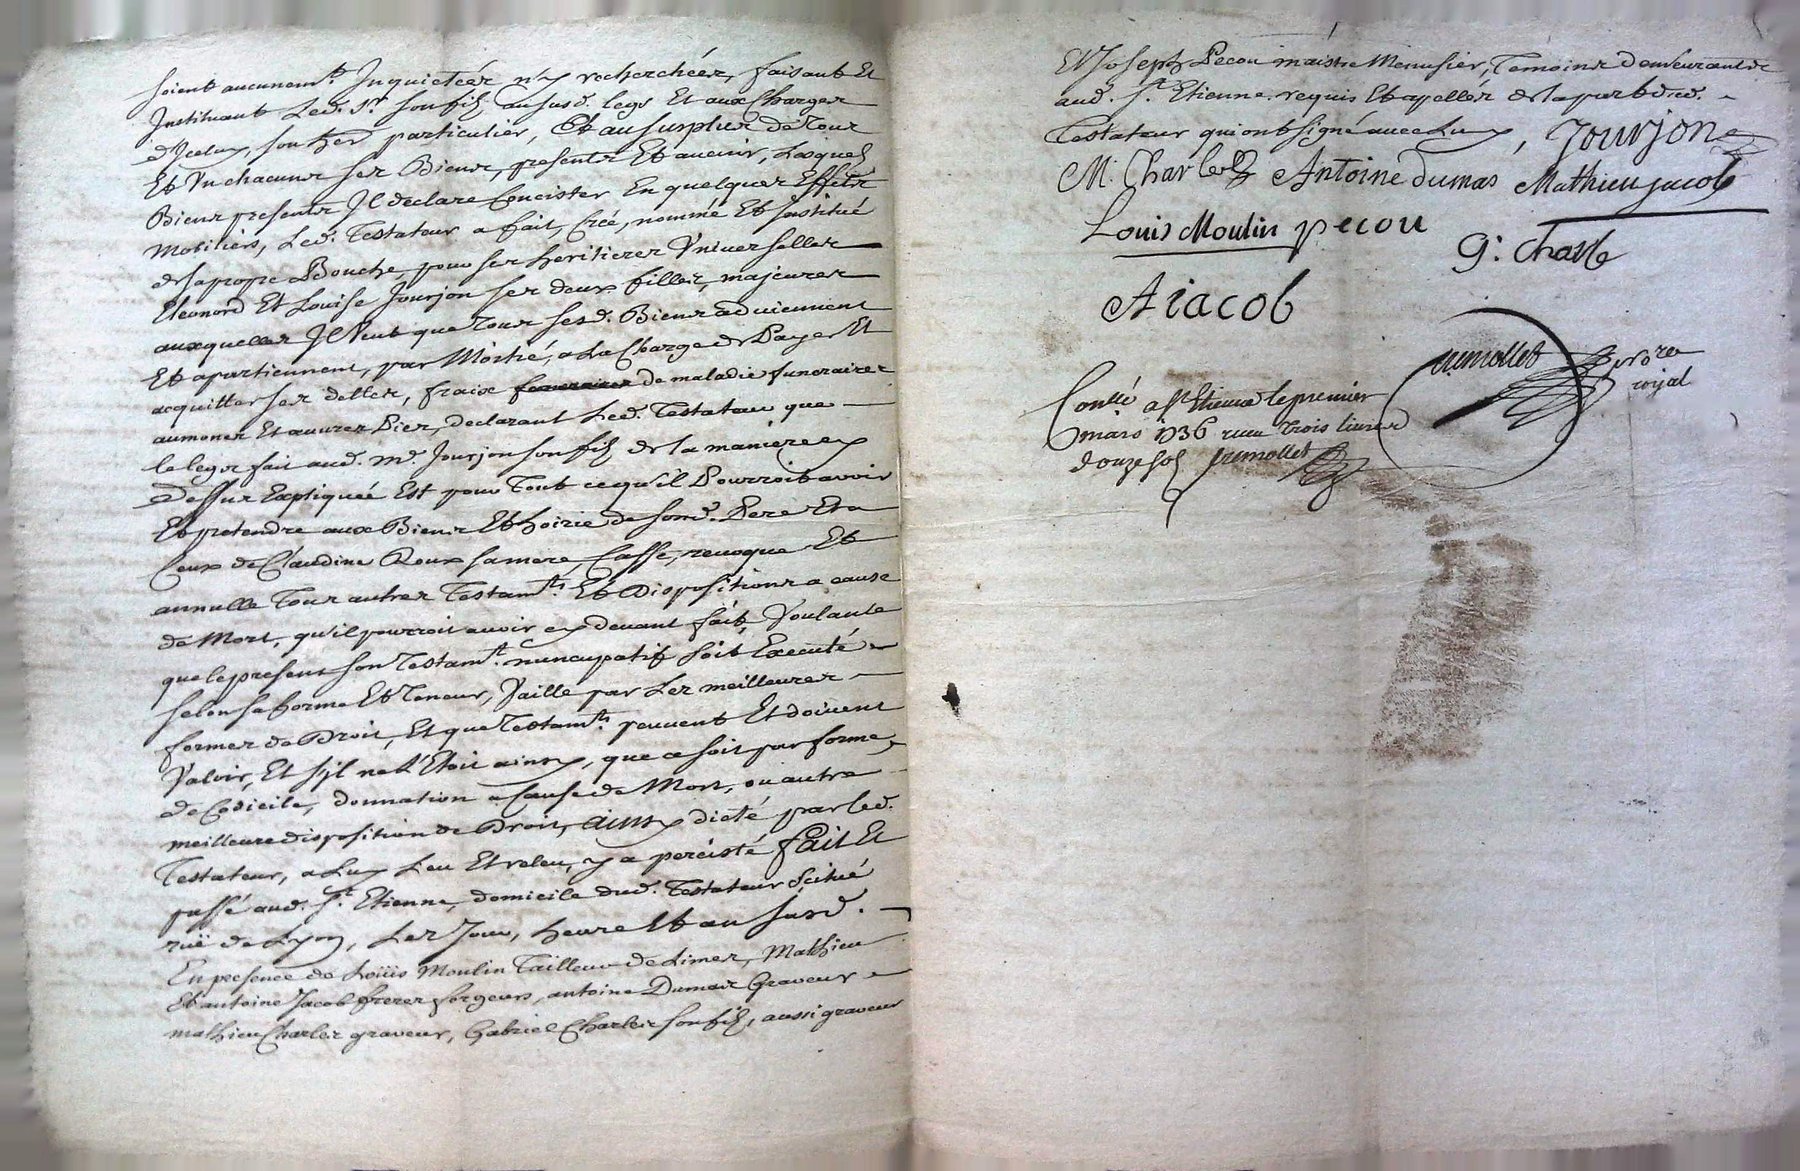 soient aucunem.t Inquietéer ny recherchéer, faisant Et
Instituant Led. Sr. son filz aususd. legs Et aux Charger
d'Iceluy, son her particulier, Et au surplus de Tour
Et Un chacuns ser Biens, presents Et avenir, Lesquels
Biens presents Il declare Concister En quelques Effets
mobiliers, Led. Testateur a fait, Créé, nommé Et Institué
de sa propre Bouche, pour ser heritieres Universeller
Eleonord Et Louise Jourjon ser deux filles, majeures
auxquelles Il Veut que Tous sesd. Biens adviennent
Et apartiennent, par Moitié, a La Charge de Payer Et
acquitter ser dettes, fraix de maladie funeraires
aumones Et autres Pies, declarant Led. Testateur que
le legs fait aud. md. Jourjon son filz de la maniere cy
Dessus Expliquée Est pour Tout ce qu'il Pourroit avoir
Et pretendre aux Biens Et hoirie de sond. Pere Et a
Ceux de Claudine Roux sa mere, Casse, revoque Et
annulle Tous autres Testam.ts Et Dispositions a cause
de Mort, qu'il pourroit avoir cy devant fait, Voulant
que le present son Testam.t nuncupatif soit Executé
selon sa forme Et Teneur, Vaille par Les meilleures
formes de Droit, Et que Testam.ts peuvent Et doivent
Valoir, Et s'il ne L'Etoit ainsy, que ce soit par forme
de Codicile, donnation a Cause de Mort, ou autre
meilleure disposition de Droit, ainsy dicté par led.
Testateur, a Luy Leu Et releu, y a percisté fait Et
passé aud. St. Etienne, domicile dud. Testateur Scitué
ruë de Lyon, Les Jour, heure Et an susd.
En presence de Loüis Moulin Tailleur de Limes, Mathieu
Et antoine Jacob freres forgeurs, antoine Dumas Graveur
mathieu Charles graveur, Gabriel Charles son filz, aussi graveur
Et Joseph Pecou maistre Menusier, Temoins demeurant
aud. St. Etienne requis Et apellés de la part dud.
Testateur qui ont signé avec Luy, Jourjon
M. Charles Antoine dumas Mathieu jacob
Louis Moulin pecou
G. Charle
A iacob
fremollet
royal
Conllé a St Etienne le premier
mars 1736 receu trois livres
douze sols fremollet